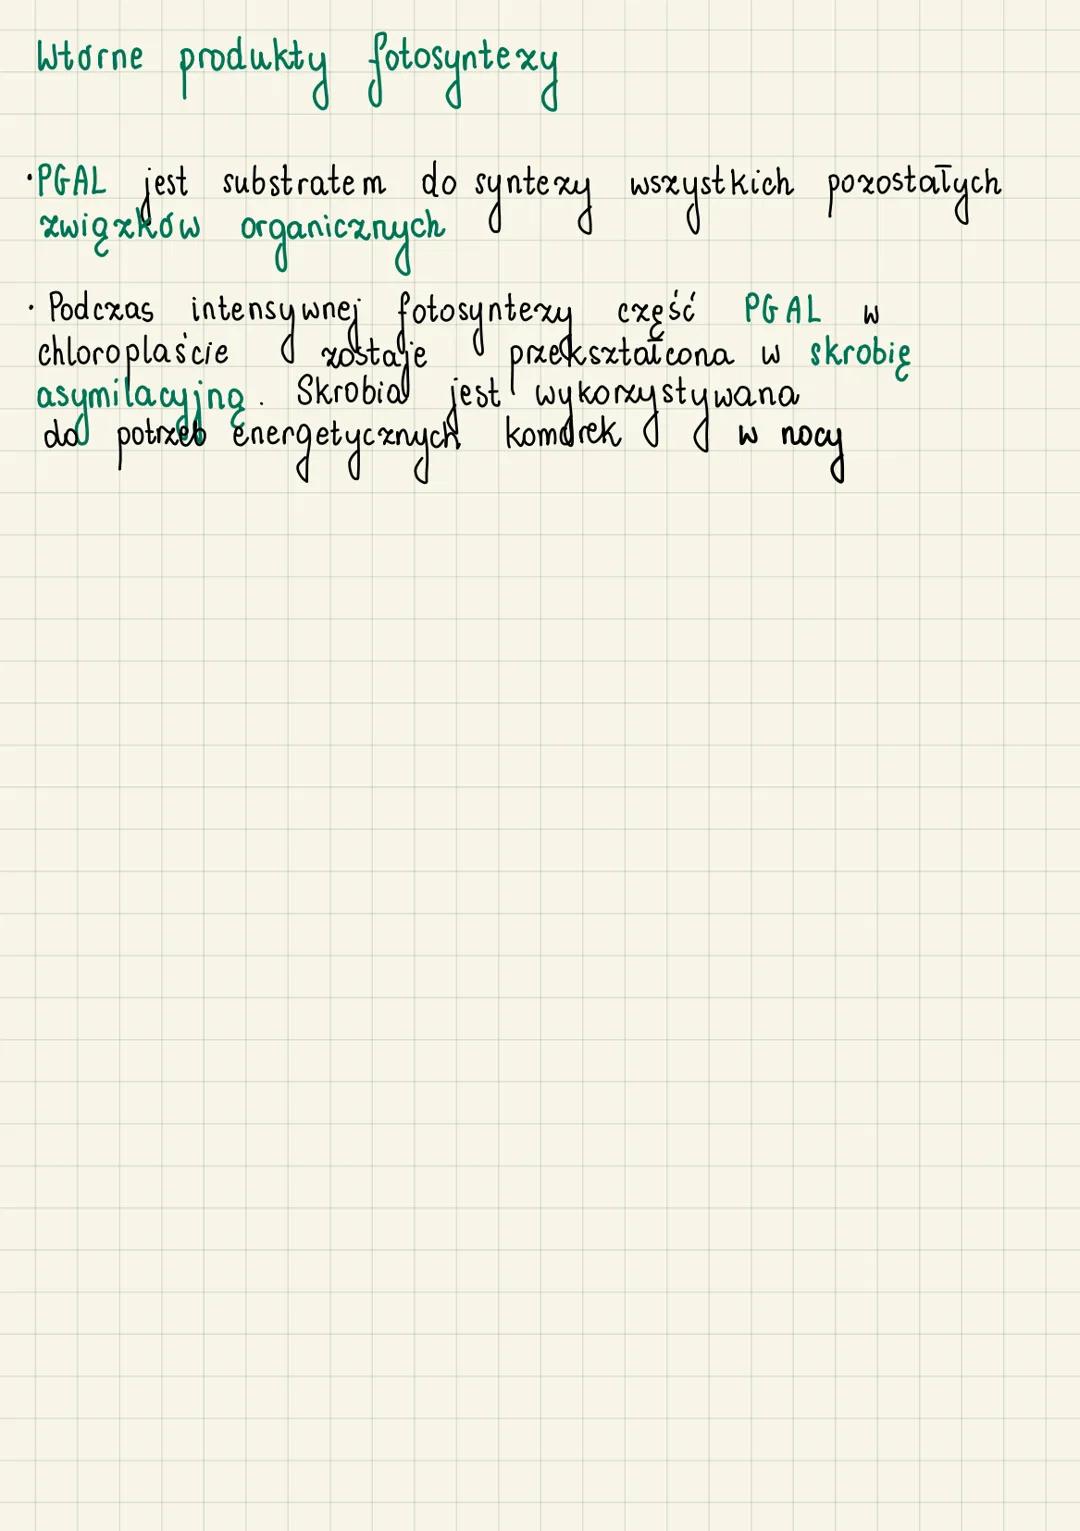 Wtórne produkty fotosyntezy
·PGAL jest substratem do syntezy wszystkich pozostałych
związków organicznych
· Podczas intensywnej fotosyntezy część PGAL w
chloroplaście zostaje przekształcona w skrobię
asymilacyjną. Skrobia jest wykorzystywana
do potrzeb energetycznych komórek w nocy